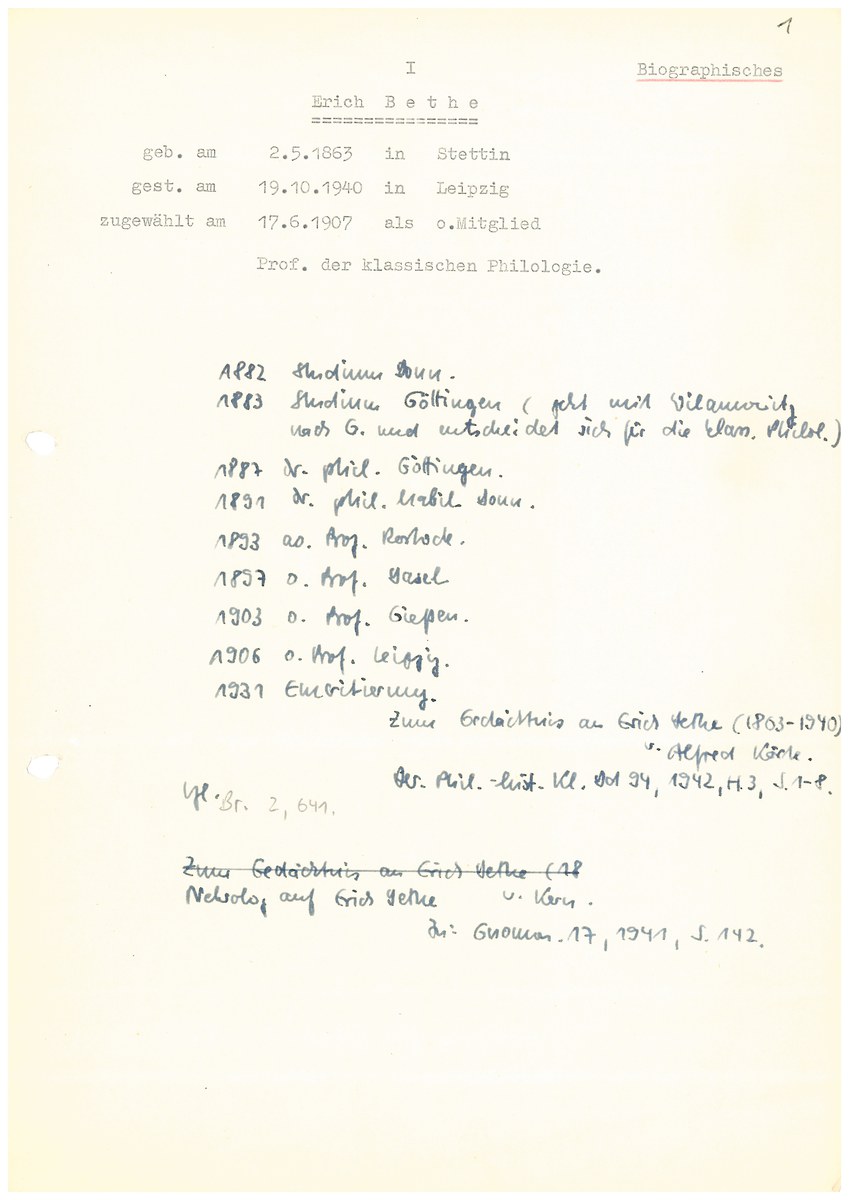 1
I
Biographisches
Erich Bethe
================
geb. am 2.5.1863 in Stettin
gest. am 19.10.1940 in Leipzig
zugewählt am 17.6.1907 als o.Mitglied
Prof. der klassischen Philologie.
1882 Studium Bonn.
1883 Studium Göttingen (geht mit Wilamowitz
nach G. und entscheidet sich für die klass. Philol.)
1887 dr. phil. Göttingen.
1891 dr. phil. habil. Bonn.
1893 ao. Prof. Rostock.
1897 o. Prof. Basel
1903 o. Prof. Gießen.
1906 o. Prof. Leipzig.
1931 Emeritierung.
Zum Gedächtnis an Erich Bethe (1863-1940)
v. Alfred Körte.
Ber. Phil.-hist. Kl. Bd 94, 1942, H.3, S.1-8.
Vgl. Br. 2, 641.
Zum Gedächtnis an Erich Bethe (18
Nekrolog auf Erich Bethe v. Kern.
In: Gnomon. 17, 1941, S. 142.